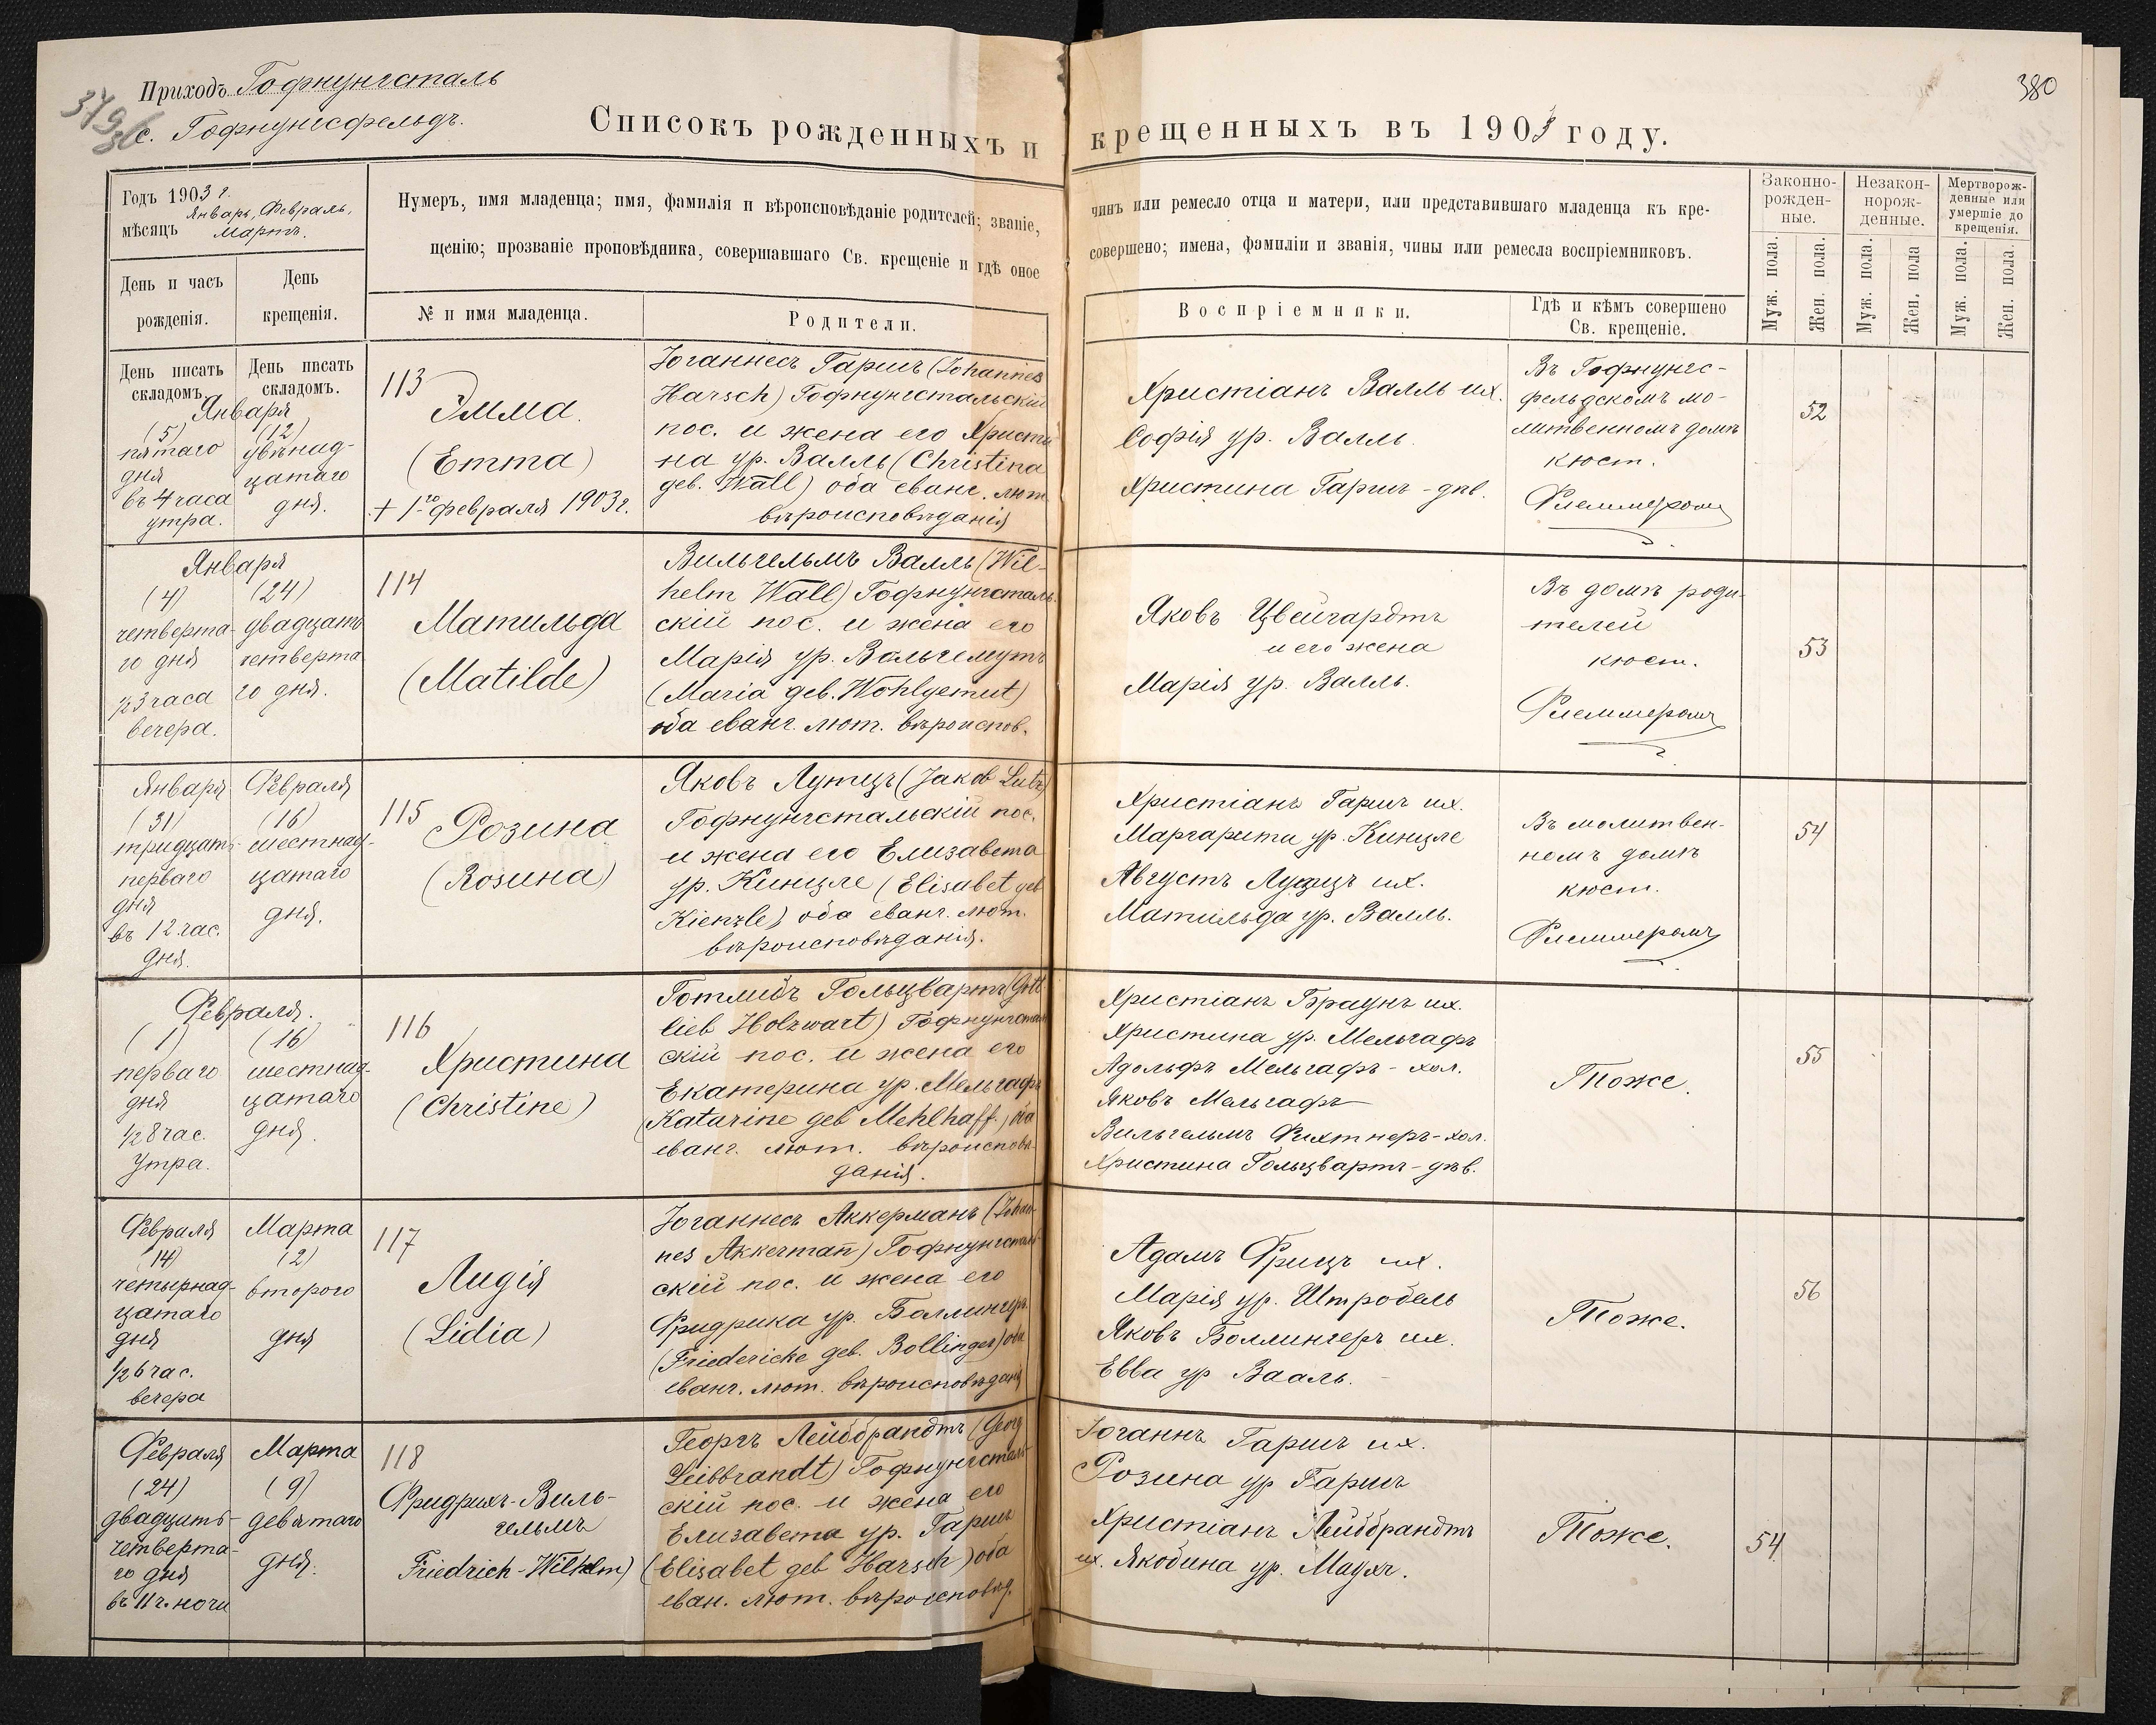 Приходъ Гофнунгсталь
с. Гофнунгсфельдъ.
379
380
Списокъ рожденныхъ и крещенныхъ въ 1903 году.
Годъ 1903 г.
мѣсяцъ Январь, Февраль,
Мартъ.
Нумеръ, имя младенца; имя, фамилія и вѣроисповѣданіе родителей; званіе, чинъ или ремесло отца и матери, или представившаго младенца къ кре-
щенію; прозваніе проповѣдника, совершавшаго Св. крещеніе и гдѣ оное совершено; имена, фэмиліи и званія, чины или ремесла воспріемниковъ.
Законно-
рожден-
ные.
Незакон-
норож-
денные.
Мертворож-
денные или
умершіе до
крещенія.
Муж. пола.
Жен. пола.
Муж. пола.
Жен. пола
Муж. пола.
Жен. пола.
День и часъ
рожденія.
День
крещенія.
№ и имя младенца.
Родители.
Воспріемники.
Гдѣ и кѣмъ совершено
Св. крещеніе.
День писать
складомъ.
День писать
складомъ.
Января
(5)
пятаго
дня
въ 4 часа
утра.
(12)
двѣнад-
цатаго
дня.
113
Эмма.
(Emma)
+ 1го февраля 1903 г.
Іоганнесъ Гаршъ (Johannes
Harsch) Гофнунгстальскій
пос. и жена его Христи
на ур. Валль (Christina
geb. Wall) оба еванг. лют.
вѣроисповѣданія
Христіанъ Валль их.
Софія ур. Валль.
Христина Гаршъ - дѣв.
Въ Гофнунгс-
фельдскомъ мо-
литвенномъ домѣ
кюст.
Флеммеромъ
52
Января
(4)
четверта-
го дня
½3 часа
вечера.
(24)
двадцать
четверта
го дня.
114
Матильда
(Matilde)
Вильгельмъ Валль (Wil-
helm Wall) Гофнунгсталь-
скій пос. и жена его
Марія ур. Вольгемутъ
(Maria geb. Wohlgemut)
оба еванг. лют. вѣроиспов.
Яковъ Цвейгардтъ
и его жена
Марія ур. Валль.
Въ домѣ роди-
телей
кюст.
Флеммеромъ
53
Января
(31)
тридцать-
перваго
дня
въ 12 час.
дня.
Февраля
(16)
шестнад-
цатаго
дня.
115
Розина
(Rosина)
Яковъ Лутцъ (Jakob Lutz)
Гофнунгстальскій пос.
и жена его Елизавета
ур. Кинцле (Elisabet geb
Kienzle) оба еванг. лют.
вѣроисповѣданія.
Христіанъ Гаршъ их.
Маргарита ур. Кинцле
Августъ Лутцъ их.
Матильда ур. Валль.
Въ молитвен-
номъ домѣ
кюст.
Флеммеромъ
54
Февраля.
(1)
перваго
дня
½8 час.
Утра.
(16)
шестнад-
цатаго
дня.
116
Христина
(Christine)
Готлибъ Гольцвартъ (Gott
lieb Holzwart) Гофнунгсталь
скій пос. и жена его
Екатерина ур. Мельгафъ
(Katarine geb Mehlhaff.) оба
еванг. лют. вѣроисповѣ-
данія.
Христіанъ Браунъ их.
Христина ур. Мельгафъ
Адольфъ Мельгафъ - хол.
Яковъ Мельгафъ
Вильгельмъ Фихтнеръ - хол.
Христина Гольцвартъ - дѣв.
Тоже.
55
Февраля
(14)
четырнад-
цатаго
дня
½6 час.
вечера
Марта
(2)
второго
дня
117
Лидія
(Lidia)
Іоганнесъ Аккерманъ (Johan-
nes Akkermañ) Гофнунгсталь
скій пос. и жена его
Фридрика ур. Боллингеръ
(Friedericke geb. Bollinger) оба
еванг. лют. вѣроисповѣданія
Адамъ Фрицъ их.
Марія ур. Штробель
Яковъ Боллингеръ их.
Евва ур Вааль.
Тоже.
56
Февраля
(24)
двадцать-
четверта-
го дня
въ 11 ч. ночи
Марта
(9)
девятаго
дня.
118
Фридрихъ-Виль-
гельмъ
Friedrich-Wilhelm)
Георгъ Лейббрандтъ (Georg
Leibbrandt) Гофнунгсталь-
скій пос. и жена его
Елизавета ур. Гаршъ
(Elisabet geb Harsch) оба
еван. лют. вѣроисповѣд.
Іоганнъ Гаршъ их.
Розина ур Гаршъ
Христіанъ Лейббрандтъ
их. Якобина ур. Маухъ.
Тоже.
54